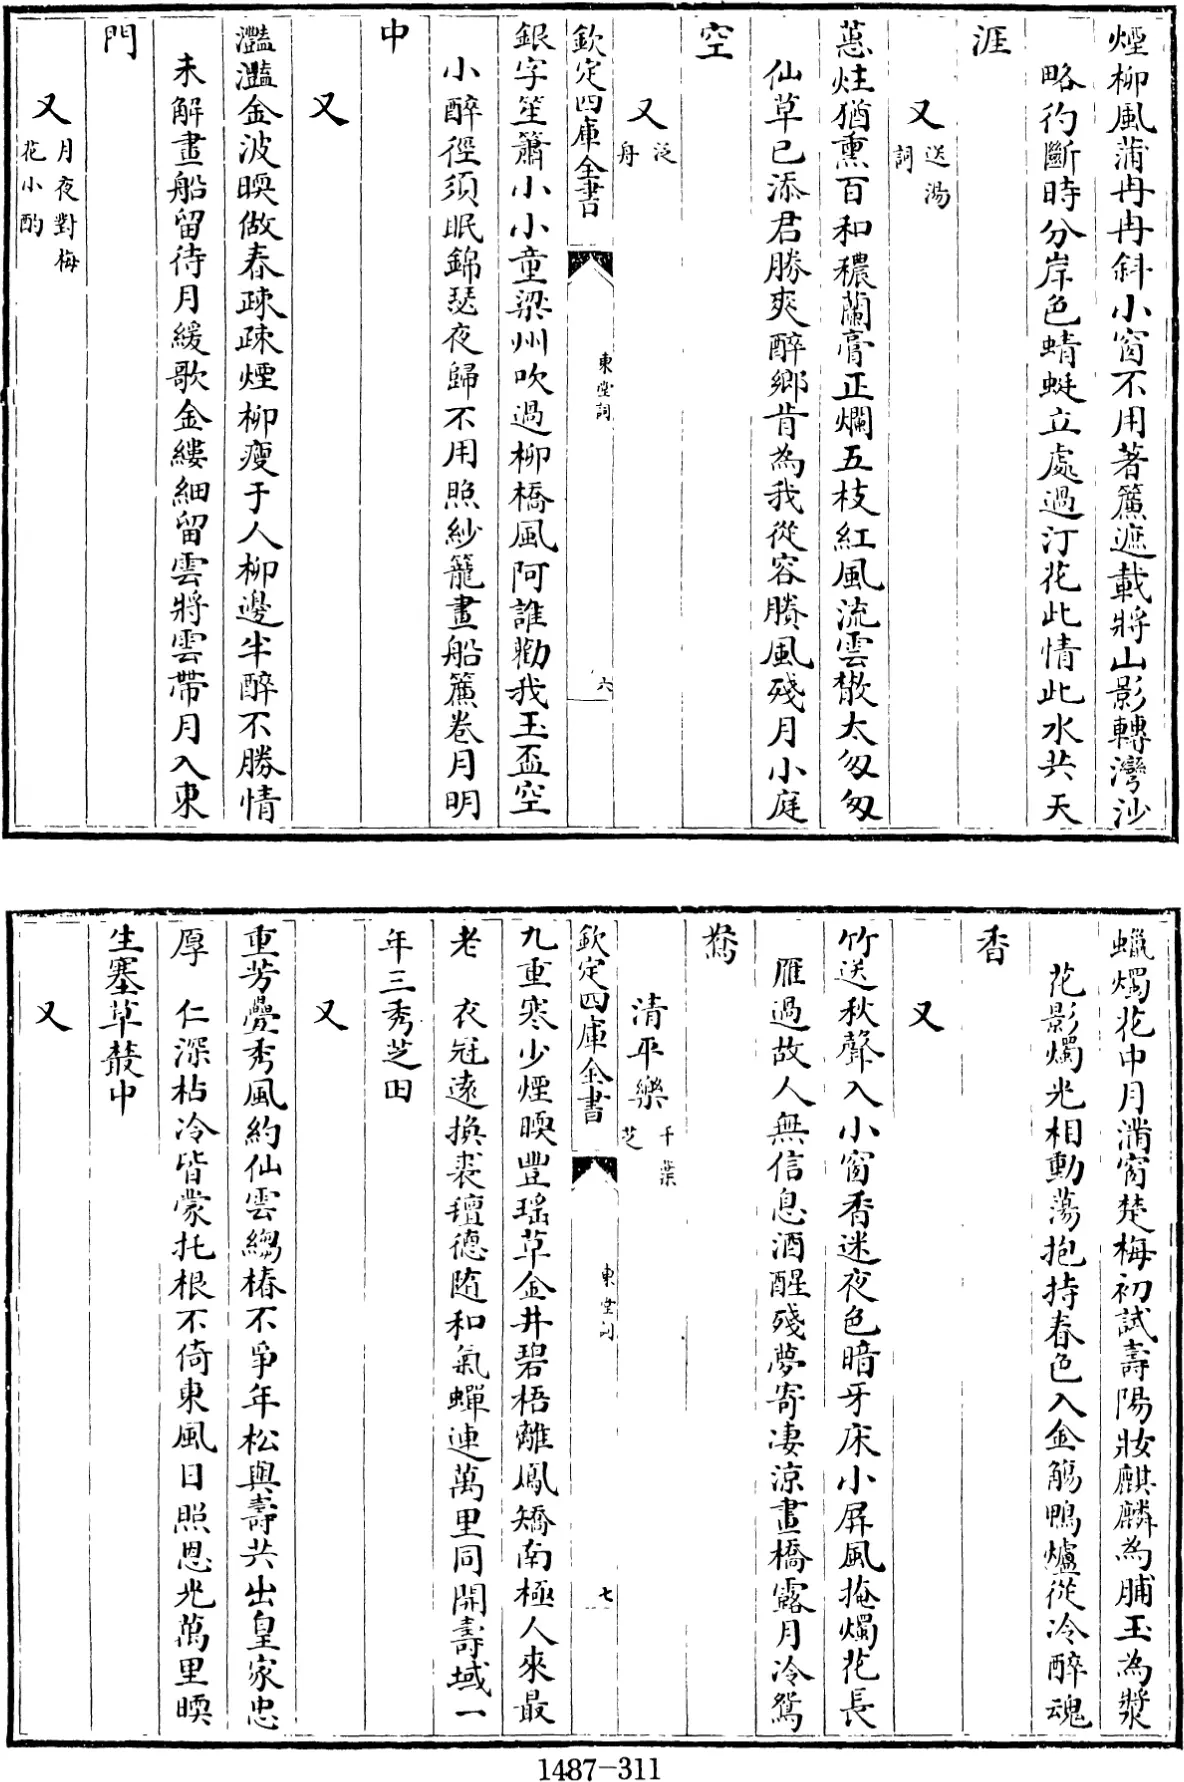 煙柳風蒲冉冉斜小窗不用著簾遮載將山影轉灣沙
略彴斷時分岸色蜻蜓立處過汀花此情此水共天
涯
又送湯詞
蕙炷猶熏百和穠蘭膏正爛五枝紅風流雲散太匆匆
仙草已添君勝爽醉鄉肯為我從容賸風殘月小庭
空
又泛舟
欽定四庫全書
東堂詞
六
銀字笙簫小小童梁州吹過柳橋風阿誰勸我玉盃空
小醉徑須眠錦瑟夜歸不用照紗籠畫船簾卷月明
中
又
灩灩金波暎做春疎疎煙柳瘦于人柳邊半醉不勝情
未解畫船留待月緩歌金縷細留雲將雲帶月入東
門
又月夜對梅花小酌
蠟燭花中月滿窗楚梅初試壽陽妝麒麟為脯玉為漿
花影燭光相動蕩抱持春色入金觴鴨爐從冷醉魂
香
又
竹送秋聲入小窗香迷夜色暗牙床小屏風掩燭花長
雁過故人無信息酒醒殘夢寄淒涼畫橋露月冷鴛
鴦
清平樂千葉芝
欽定四庫全書
東堂詞
七
九重寒少煙暎豐瑤草金井碧梧雛鳳矯南極人來最
老 衣冠遠換裘氊德随和氣蟬連萬里同開壽域一
年三秀芝田
又
重芳疊秀風約仙雲縐椿不爭年松與壽共出皇家忠
厚 仁深枯冷皆蒙托根不倚東風日照恩光萬里暎
生塞草叢中
又
1487-311